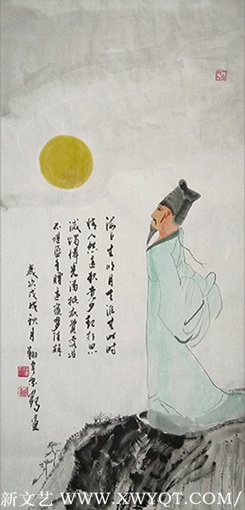 海上生明月天涯共此時
情人怨遥夜竟夕起相思
滅燭憐光满披衣覺露滋
不堪盈手贈還寢夢佳期
歲次戊戌秋月
新文艺 www.XWYQT.COM/